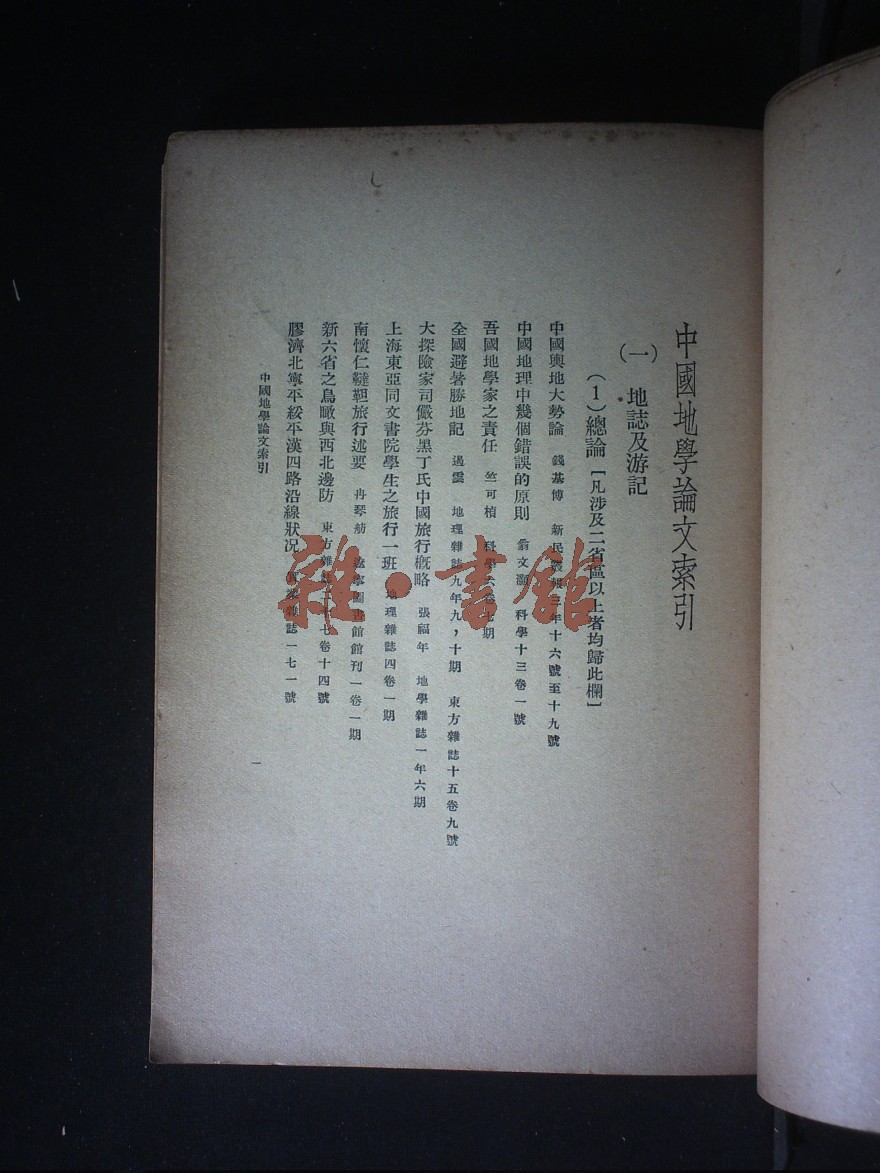 中國地學論文索引
（一）地誌及游記
（1）總論［凡涉及二省區以上者均歸此欄］
中國輿地大勢論　錢基博　新民叢報三年十六號至十九號
中國地理中幾個錯誤的原則　翁文灝　科學十三卷一號
吾國地學家之責任　竺可楨　科學六卷七期
全國避暑勝地記　過雲　地理雜誌九年九，十期　東方雜誌十五卷九號
大探險家司儼芬黑丁氏中國旅行概略　張福年　地學雜誌一年六期
上海東亞同文書院學生之旅行一班　地理雜誌四卷一期
南懷仁韃靼旅行述要　冉琴舫　圖書館館刊一卷一期
新六省之鳥瞰與西北邊防　東方雜誌二十七卷十四號
膠濟北寧平綏平漢四路沿線狀况　雜誌一七一號
中國地學論文索引
一
雜·書館